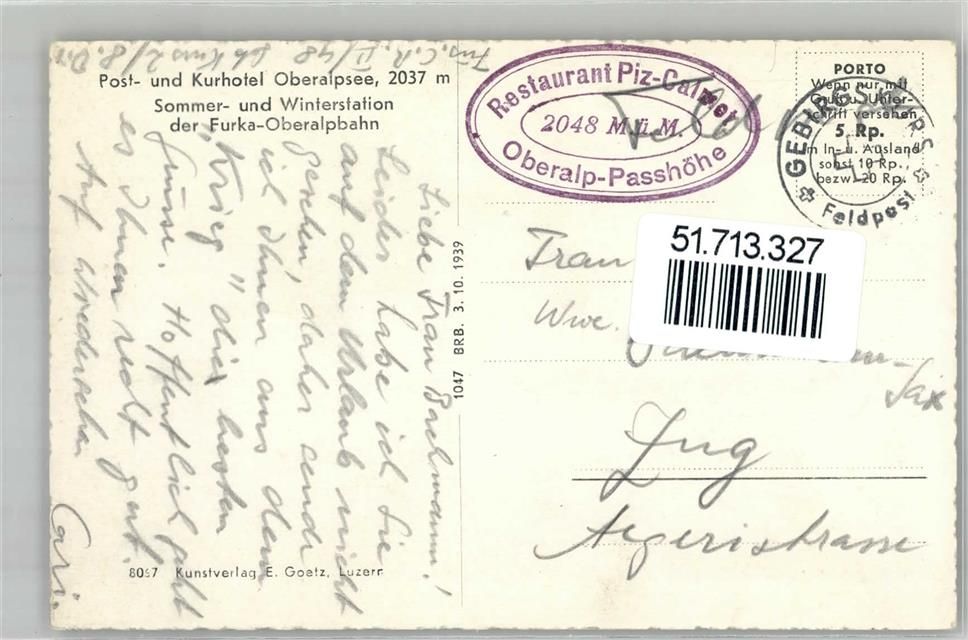 Post- und Kurhotel Oberalpsee, 2037 m
Sommer- und Winterstation
der Furka-Oberalpbahn
Füs. C. R. II/48
Liebe Frau Bachmann!
Leider habe ich Sie
auf dem Urlaub nicht
gesehen, daher sende
ich Ihnen aus dem
"Krieg" die besten
Grüsse. Hoffentlich geht
es Ihnen recht gut.
Auf Wiedersehen
Cari.
8067 Kunstverlag E. Goetz, Luzern
1047 BRB. 3. 10. 1939
Restaurant Piz-Calmot
2048 M.ü.M.
Oberalp-Passhöhe
Feld
PORTO
Wenn nur mit
Gruss u. Unter-
schrift versehen
5. Rp.
im In- u. Ausland
sonst 10 Rp.,
bezw. 20 Rp.
GEBIRGSKURS
Feldpost
51.713.327
Frau
Wwe.
Zug
Aegeristrasse